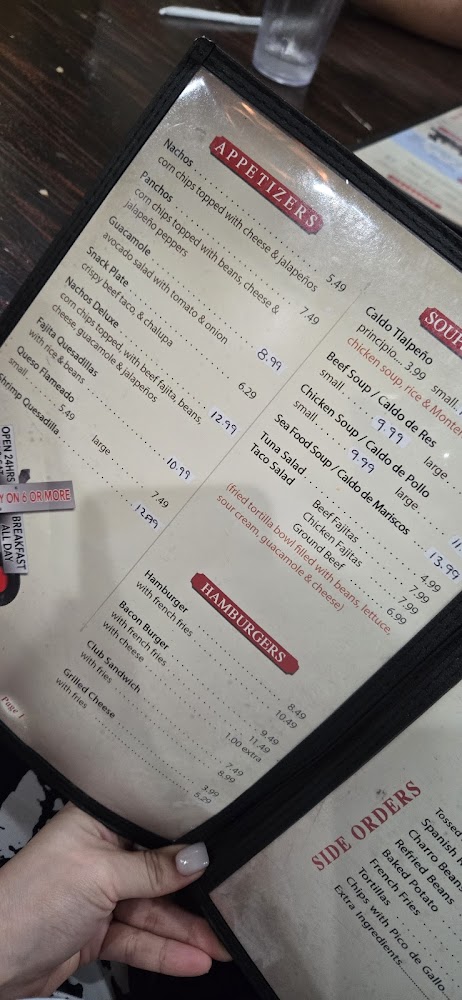 APPETIZERS
Nachos
corn chips topped with cheese & jalapeños 5.49
Panchos
corn chips topped with beans, cheese &
jalapeño peppers 7.49
Guacamole
avocado salad with tomato & onion 8.99
Snack Plate
crispy beef taco, & chalupa 6.29
Nachos Deluxe
corn chips topped, with beef fajita, beans,
cheese, guacamole & jalapeños 12.99
Fajita Quesadillas
with rice & beans 10.99
Queso Flameado
small 5.49 large 7.49
Shrimp Quesadilla 12.99
OPEN 24HRS
Y ON 6 OR MORE
BREAKFAST
ALL DAY
HAMBURGERS
Hamburger 8.49
with french fries 10.49
Bacon Burger 9.49
with french fries 11.49
with cheese 1.00 extra
Club Sandwich 7.49
with fries 8.99
Grilled Cheese 3.99
with fries 5.29
Page 1
SOUP
Caldo Tlalpeño
principio... 3.99 small.
chicken soup, rice & Monter
Beef Soup / Caldo de Res
small. 9.99 large
Chicken Soup / Caldo de Pollo
small. 9.99 large.
Sea Food Soup / Caldo de Mariscos 13.99
Tuna Salad 4.99
Taco Salad
Beef Fajitas 7.99
Chicken Fajitas 7.99
Ground Beef 6.99
(fried tortilla bowl filled with beans, lettuce,
sour cream, guacamole & cheese)
SIDE ORDERS
Tossed
Spanish
Charro Beans
Refried Beans
Baked Potato
French Fries
Tortillas
Chips with Pico de Gallo
Extra Ingredients